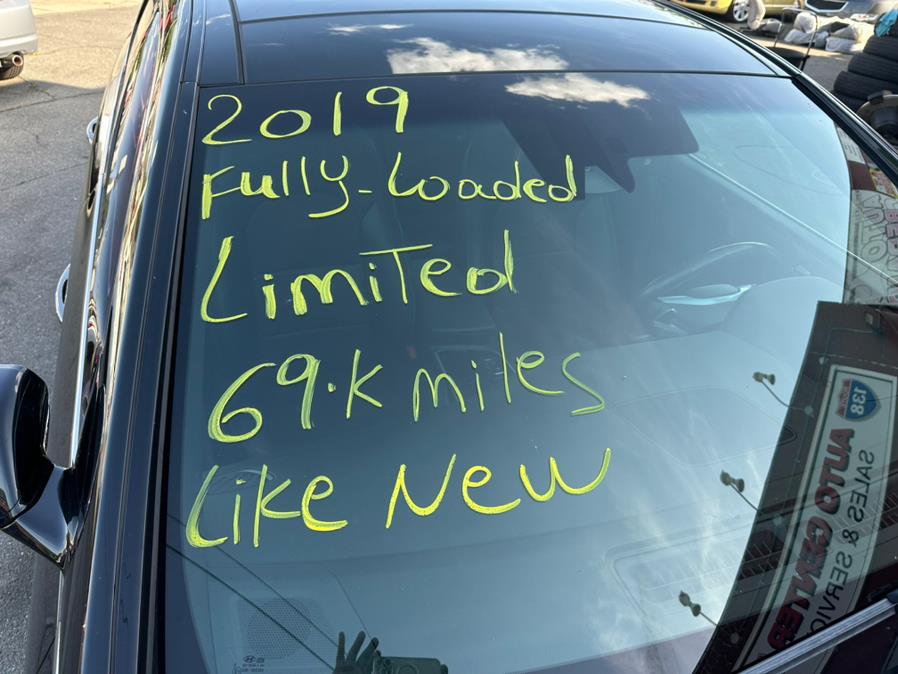 2019
Fully-Loaded
Limited
69.K miles
Like New
138
AUTO CENTER
SALES & SERVICE